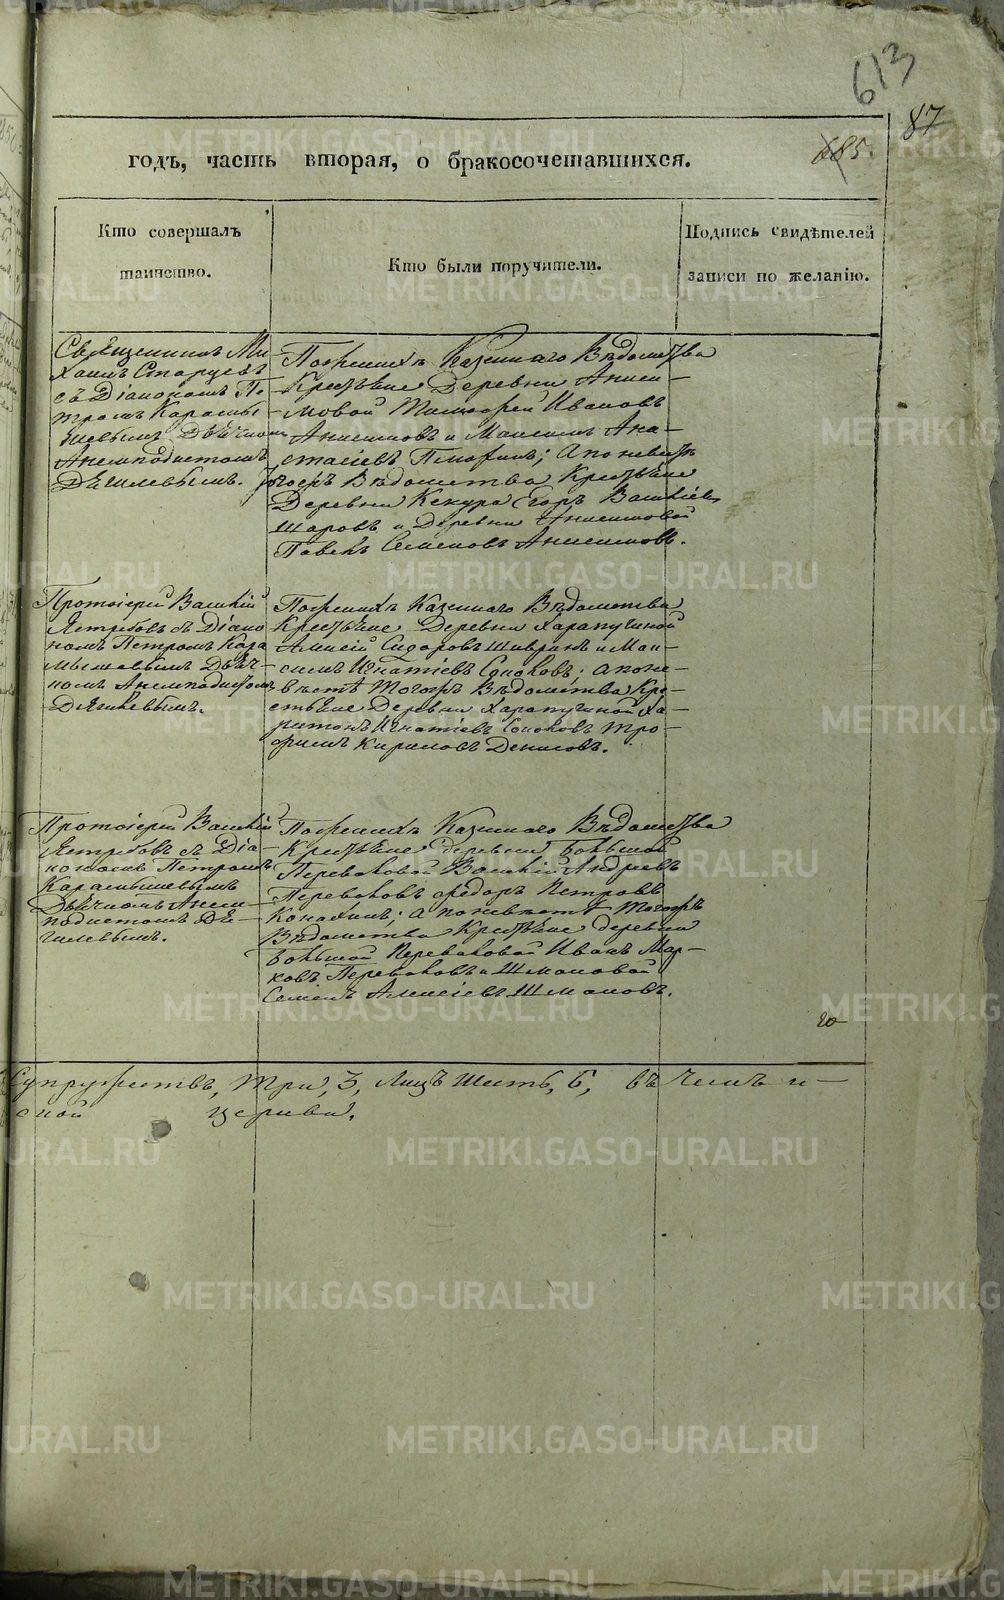 613
87
685.
годъ, часть вторая, о бракосочетавшихся.
Кто совершалъ
таинство.
Кто были поручители.
Подпись свидѣтелей
записи по желанію.
Священникъ Ми-
хаилъ Старцевъ
съ Діакономъ Пе-
тромъ Карамы-
шевымъ Дьячкомъ
Анемподистомъ
По женихѣ Казеннаго Вѣдомства
Крестьяне Деревни Аниси-
мовой Тимофей Ивановъ
Анисимовъ и Максимъ Ана-
стасіевъ; а по невѣстѣ
тогожъ Вѣдомства Крестьяне
Деревни Кекура Егоръ Васильевъ
Шаровъ и Деревни Анисимовой
Павелъ Семеновъ Анисимовъ.
Протоіерей Василій
Ястребовъ съ Діако
номъ Петромъ Кара
мышевымъ Дьяч-
комъ Анемподистомъ
По женихѣ Казеннаго Вѣдомства
Крестьяне Деревни Харапугиной
Алексій Сидоровъ и Мак-
симъ Игнатіевъ; а по не-
вѣстѣ тогожъ Вѣдомства Кре-
стьяне Деревни Харапугиной Ха-
ритонъ Игнатіевъ Тро-
фимъ Кириловъ Денисовъ.
Протоіерей Василій
Ястребовъ съ Діа-
кономъ Петромъ
Карамышевымъ
Дьячкомъ Анем-
подистомъ
По женихѣ Казеннаго Вѣдомства
Крестьяне деревни Большой
Переваловой Василій Андреевъ
Переваловъ Федоръ Петровъ
а по невѣстѣ тогожъ
Вѣдомства Крестьяне деревни
Большой Переваловой Иванъ Мар-
ковъ Переваловъ и Шмаковой
Семенъ Алексіевъ Шмаковъ.
Супружествъ, три, 3, лицъ шесть, 6, въ чемъ и-
церкви.
METRIKI.GASO-URAL.RU